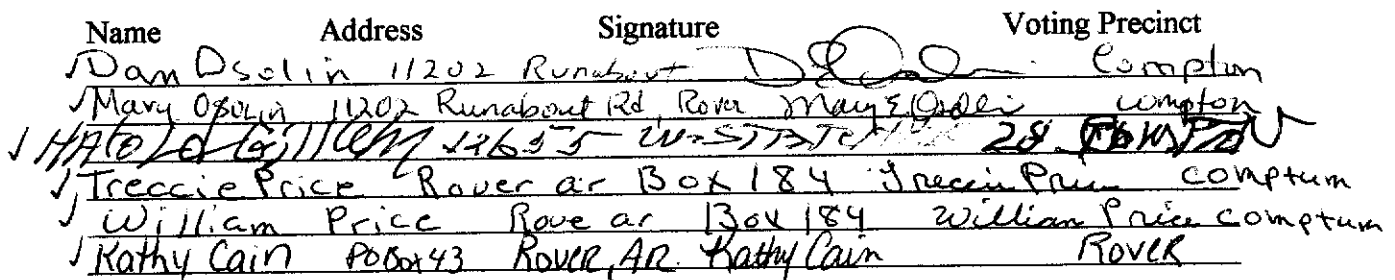 Name Address Signature Voting Precinct
Dan Osolin 11202 Runabout Compton
Mary Osolin 11202 Runabout Rd, Rover Mary E Osolin compton
HArold Gillem 12655 W STATE 28
Treccie Price Rover ar Box 184 Treccie Price comptum
William Price Rove ar Box 184 William Price comptum
Kathy Cain PO Box 43 Rover, AR. Kathy Cain Rover